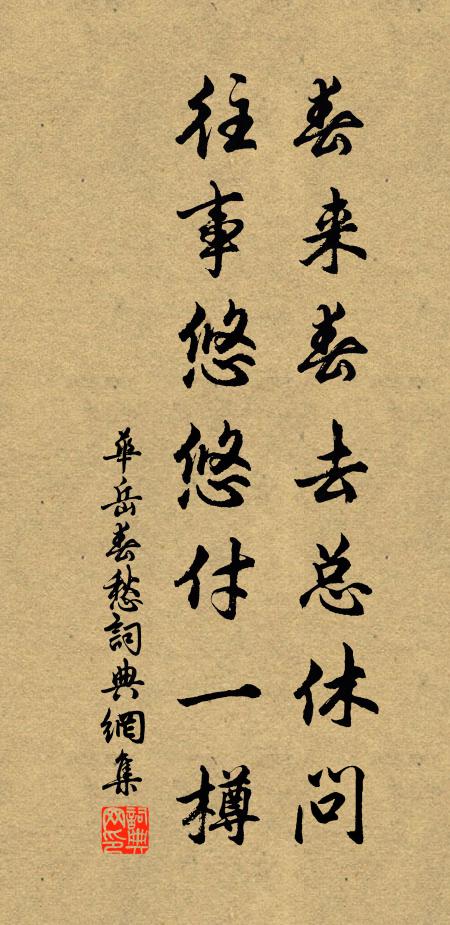 春来春去总休问
往事悠悠付一樽
華岳春愁詞典網集
詞典网印